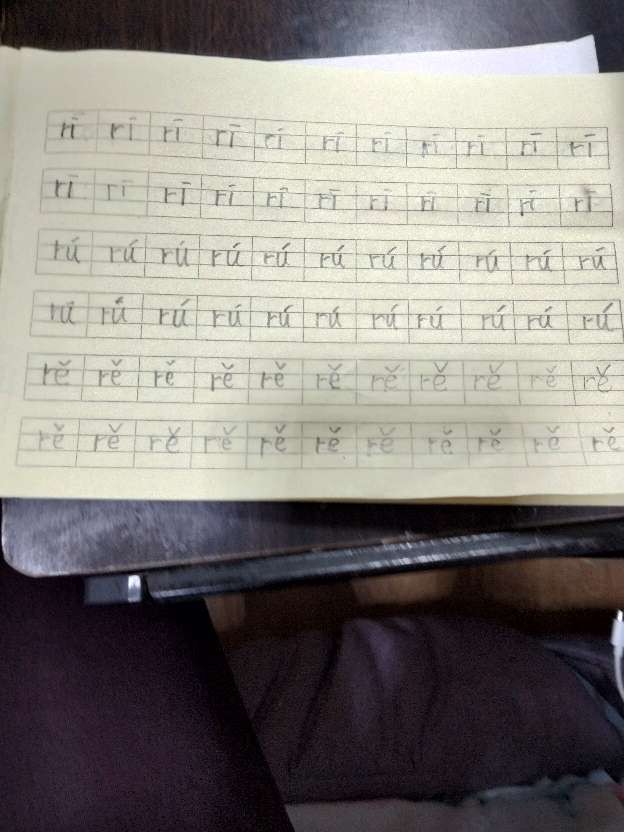 rī rī rī rī rī rī rī rī rī rī rī
rī rī rī rī rī rī rī rī rī rī rī
rú rú rú rú rú rú rú rú rú rú rú
rú rú rú rú rú rú rú rú rú rú rú
rě rě rě rě rě rě rě rě rě rě rě
rě rě rě rě rě rě rě rě rě rě rě